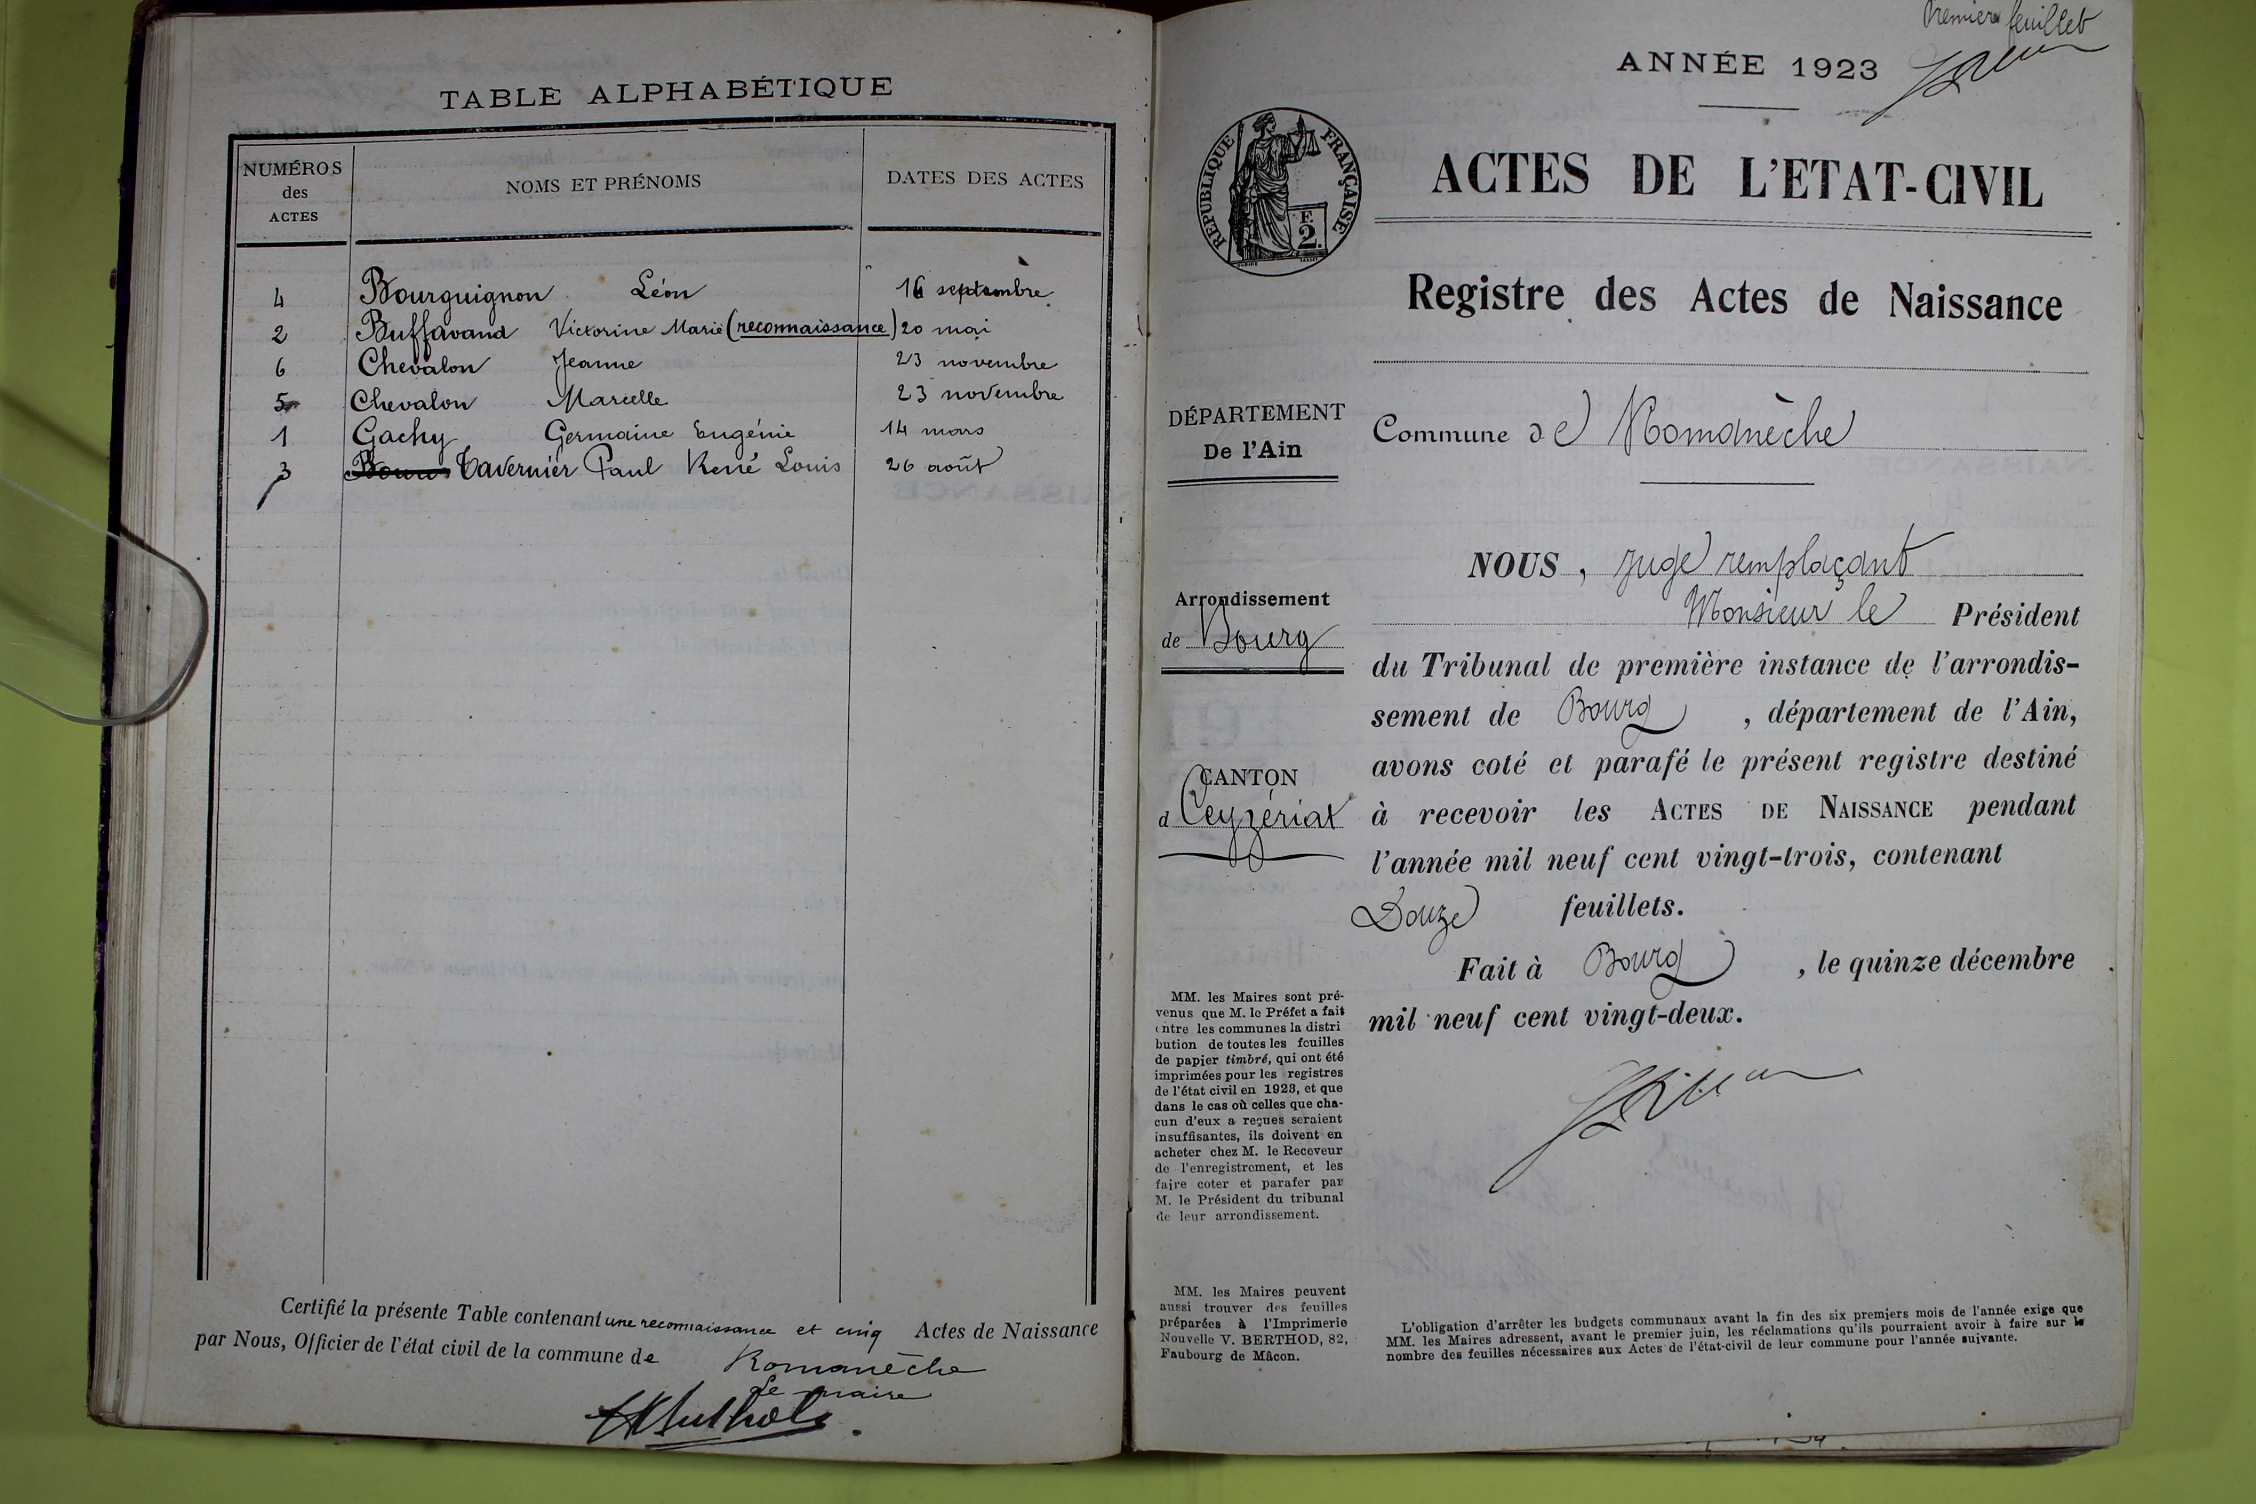 TABLE ALPHABÉTIQUE
NUMÉROS
des
ACTES
NOMS ET PRÉNOMS
DATES DES ACTES
4 Bourguignon Léon 16 septembre
2 Buffavand Victorine Marie (reconnaissance) 20 mai
6 Chevalon Jeanne 23 novembre
5 Chevalon Marcelle 23 novembre
1 Gachy Germaine Eugénie 14 mars
3 Tavernier Paul René Louis 26 août
Certifié la présente Table contenant une reconnaissance et cinq Actes de Naissance
par Nous, Officier de l'état civil de la commune de Romanèche
Le maire
Premier feuillet
ANNÉE 1923
RÉPUBLIQUE FRANÇAISE
F.
2.
ACTES DE L'ETAT-CIVIL
Registre des Actes de Naissance
DÉPARTEMENT
De l'Ain
Commune de Romanèche
Arrondissement
de Bourg
CANTON
d Ceyzériat
NOUS, Juge remplaçant
Monsieur le Président
du Tribunal de première instance de l'arrondis-
sement de Bourg, département de l'Ain,
avons coté et parafé le présent registre destiné
à recevoir les ACTES DE NAISSANCE pendant
l'année mil neuf cent vingt-trois, contenant
Douze feuillets.
Fait à Bourg, le quinze décembre
mil neuf cent vingt-deux.
MM. les Maires sont pré-
venus que M. le Préfet a fait
entre les communes la distri
bution de toutes les feuilles
de papier timbré, qui ont été
imprimées pour les registres
de l'état civil en 1923, et que
dans le cas où celles que cha-
cun d'eux a reçues seraient
insuffisantes, ils doivent en
acheter chez M. le Receveur
de l'enregistrement, et les
faire coter et parafer par
M. le Président du tribunal
de leur arrondissement.
MM. les Maires peuvent
aussi trouver des feuilles
préparées à l'Imprimerie
Nouvelle V. BERTHOD, 82,
Faubourg de Mâcon.
L'obligation d'arrêter les budgets communaux avant la fin des six premiers mois de l'année exige que
MM. les Maires adressent, avant le premier juin, les réclamations qu'ils pourraient avoir à faire sur le
nombre des feuilles nécessaires aux Actes de l'état-civil de leur commune pour l'année suivante.